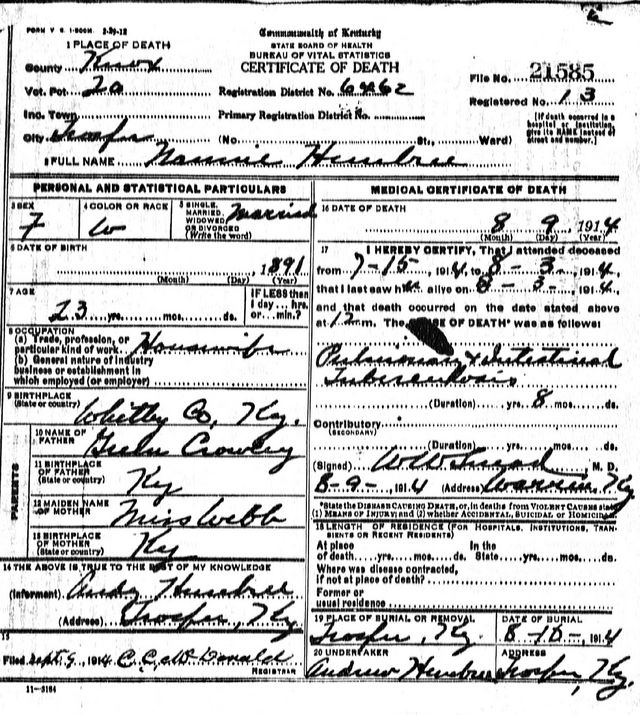 FORM V. S. 1-500M. 2-29-12
Commonwealth of Kentucky
STATE BOARD OF HEALTH
BUREAU OF VITAL STATISTICS
CERTIFICATE OF DEATH
1 PLACE OF DEATH
County Knox
Vot. Pct. 20
Inc. Town
City Trosper (No. St., Ward)
Registration District No.
Primary Registration District No.
File No. 21585
Registered No. 13
[If death occurred in a
hospital or institution,
give its NAME instead of
street and number.]
2 FULL NAME Nannie Hembree
PERSONAL AND STATISTICAL PARTICULARS
3 SEX
F
4 COLOR OR RACE
W
5 SINGLE,
MARRIED,
WIDOWED
OR DIVORCED
(Write the word)
Married
6 DATE OF BIRTH
1891
(Month) (Day) (Year)
7 AGE
23 yrs. mos. ds.
IF LESS than
1 day... hrs.
or... min.?
8 OCCUPATION
(a) Trade, profession, or
particular kind of work Housewife
(b) General nature of industry
business or establishment in
which employed (or employer)
9 BIRTHPLACE
(State or country) Whitley Co, Ky.
PARENTS
10 NAME OF
FATHER Crowley
11 BIRTHPLACE
OF FATHER
(State or country) Ky
12 MAIDEN NAME
OF MOTHER Miss Webb
13 BIRTHPLACE
OF MOTHER
(State or country) Ky
14 THE ABOVE IS TRUE TO THE BEST OF MY KNOWLEDGE
(Informant) Andy Hembree
(Address) Trosper, Ky
15
Filed Sept. 9, 1914 C. C. McDonald
REGISTRAR
11-3184
MEDICAL CERTIFICATE OF DEATH
16 DATE OF DEATH
8 9 1914
(Month) (Day) (Year)
17 I HEREBY CERTIFY, That I attended deceased
from 7-15, 1914, to 8-3, 1914,
that I last saw h alive on 8-3-, 1914,
and that death occurred on the date stated above
at 12 m. The CAUSE OF DEATH* was as follows:
Pulmonary & Intestinal
Tuberculosis
(Duration) yrs. 8 mos. ds.
Contributory
(SECONDARY)
(Duration) yrs. mos. ds.
(Signed) M. D.
8-9-, 1914 (Address) Warren, Ky
*State the DISEASE CAUSING DEATH, or, in deaths from VIOLENT CAUSES state
(1) MEANS OF INJURY; and (2) whether ACCIDENTAL, SUICIDAL or HOMICIDAL.
18 LENGTH OF RESIDENCE (FOR HOSPITALS, INSTITUTIONS, TRAN-
SIENTS OR RECENT RESIDENTS)
At place In the
of death yrs. mos. ds. State yrs. mos. ds.
Where was disease contracted,
if not at place of death?
Former or
usual residence
19 PLACE OF BURIAL OR REMOVAL
Trosper, Ky.
DATE OF BURIAL
8-10-, 1914
20 UNDERTAKER
Andrew Hembree
ADDRESS
Trosper, Ky.